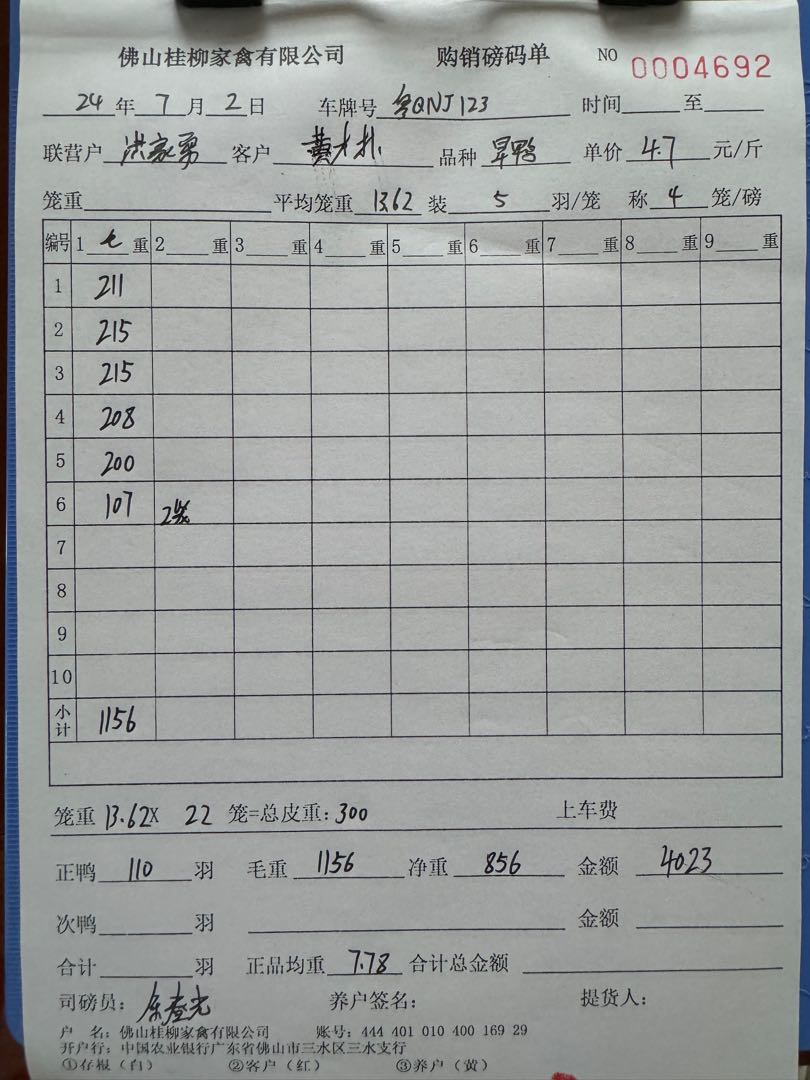 佛山桂柳家禽有限公司 购销磅码单 NO 0004692
24年7月2日 车牌号 粤QNJ123 时间 至
联营户 洪家勇 客户 黄 品种 旱鸭 单价 4.7 元/斤
笼重 平均笼重 13.62 装 5 羽/笼 称 4 笼/磅
编号 1 毛 重 2 重 3 重 4 重 5 重 6 重 7 重 8 重 9 重
1 211
2 215
3 215
4 208
5 200
6 107 2笼
7
8
9
10
小计 1156
笼重 13.62X 22 笼=总皮重: 300 上车费
正鸭 110 羽 毛重 1156 净重 856 金额 4023
次鸭 羽 金额
合计 羽 正品均重 7.78 合计总金额
司磅员: 养户签名: 提货人:
户 名: 佛山桂柳家禽有限公司 账号: 444 401 010 400 169 29
开户行: 中国农业银行广东省佛山市三水区三水支行
①存根(白) ②客户(红) ③养户(黄)